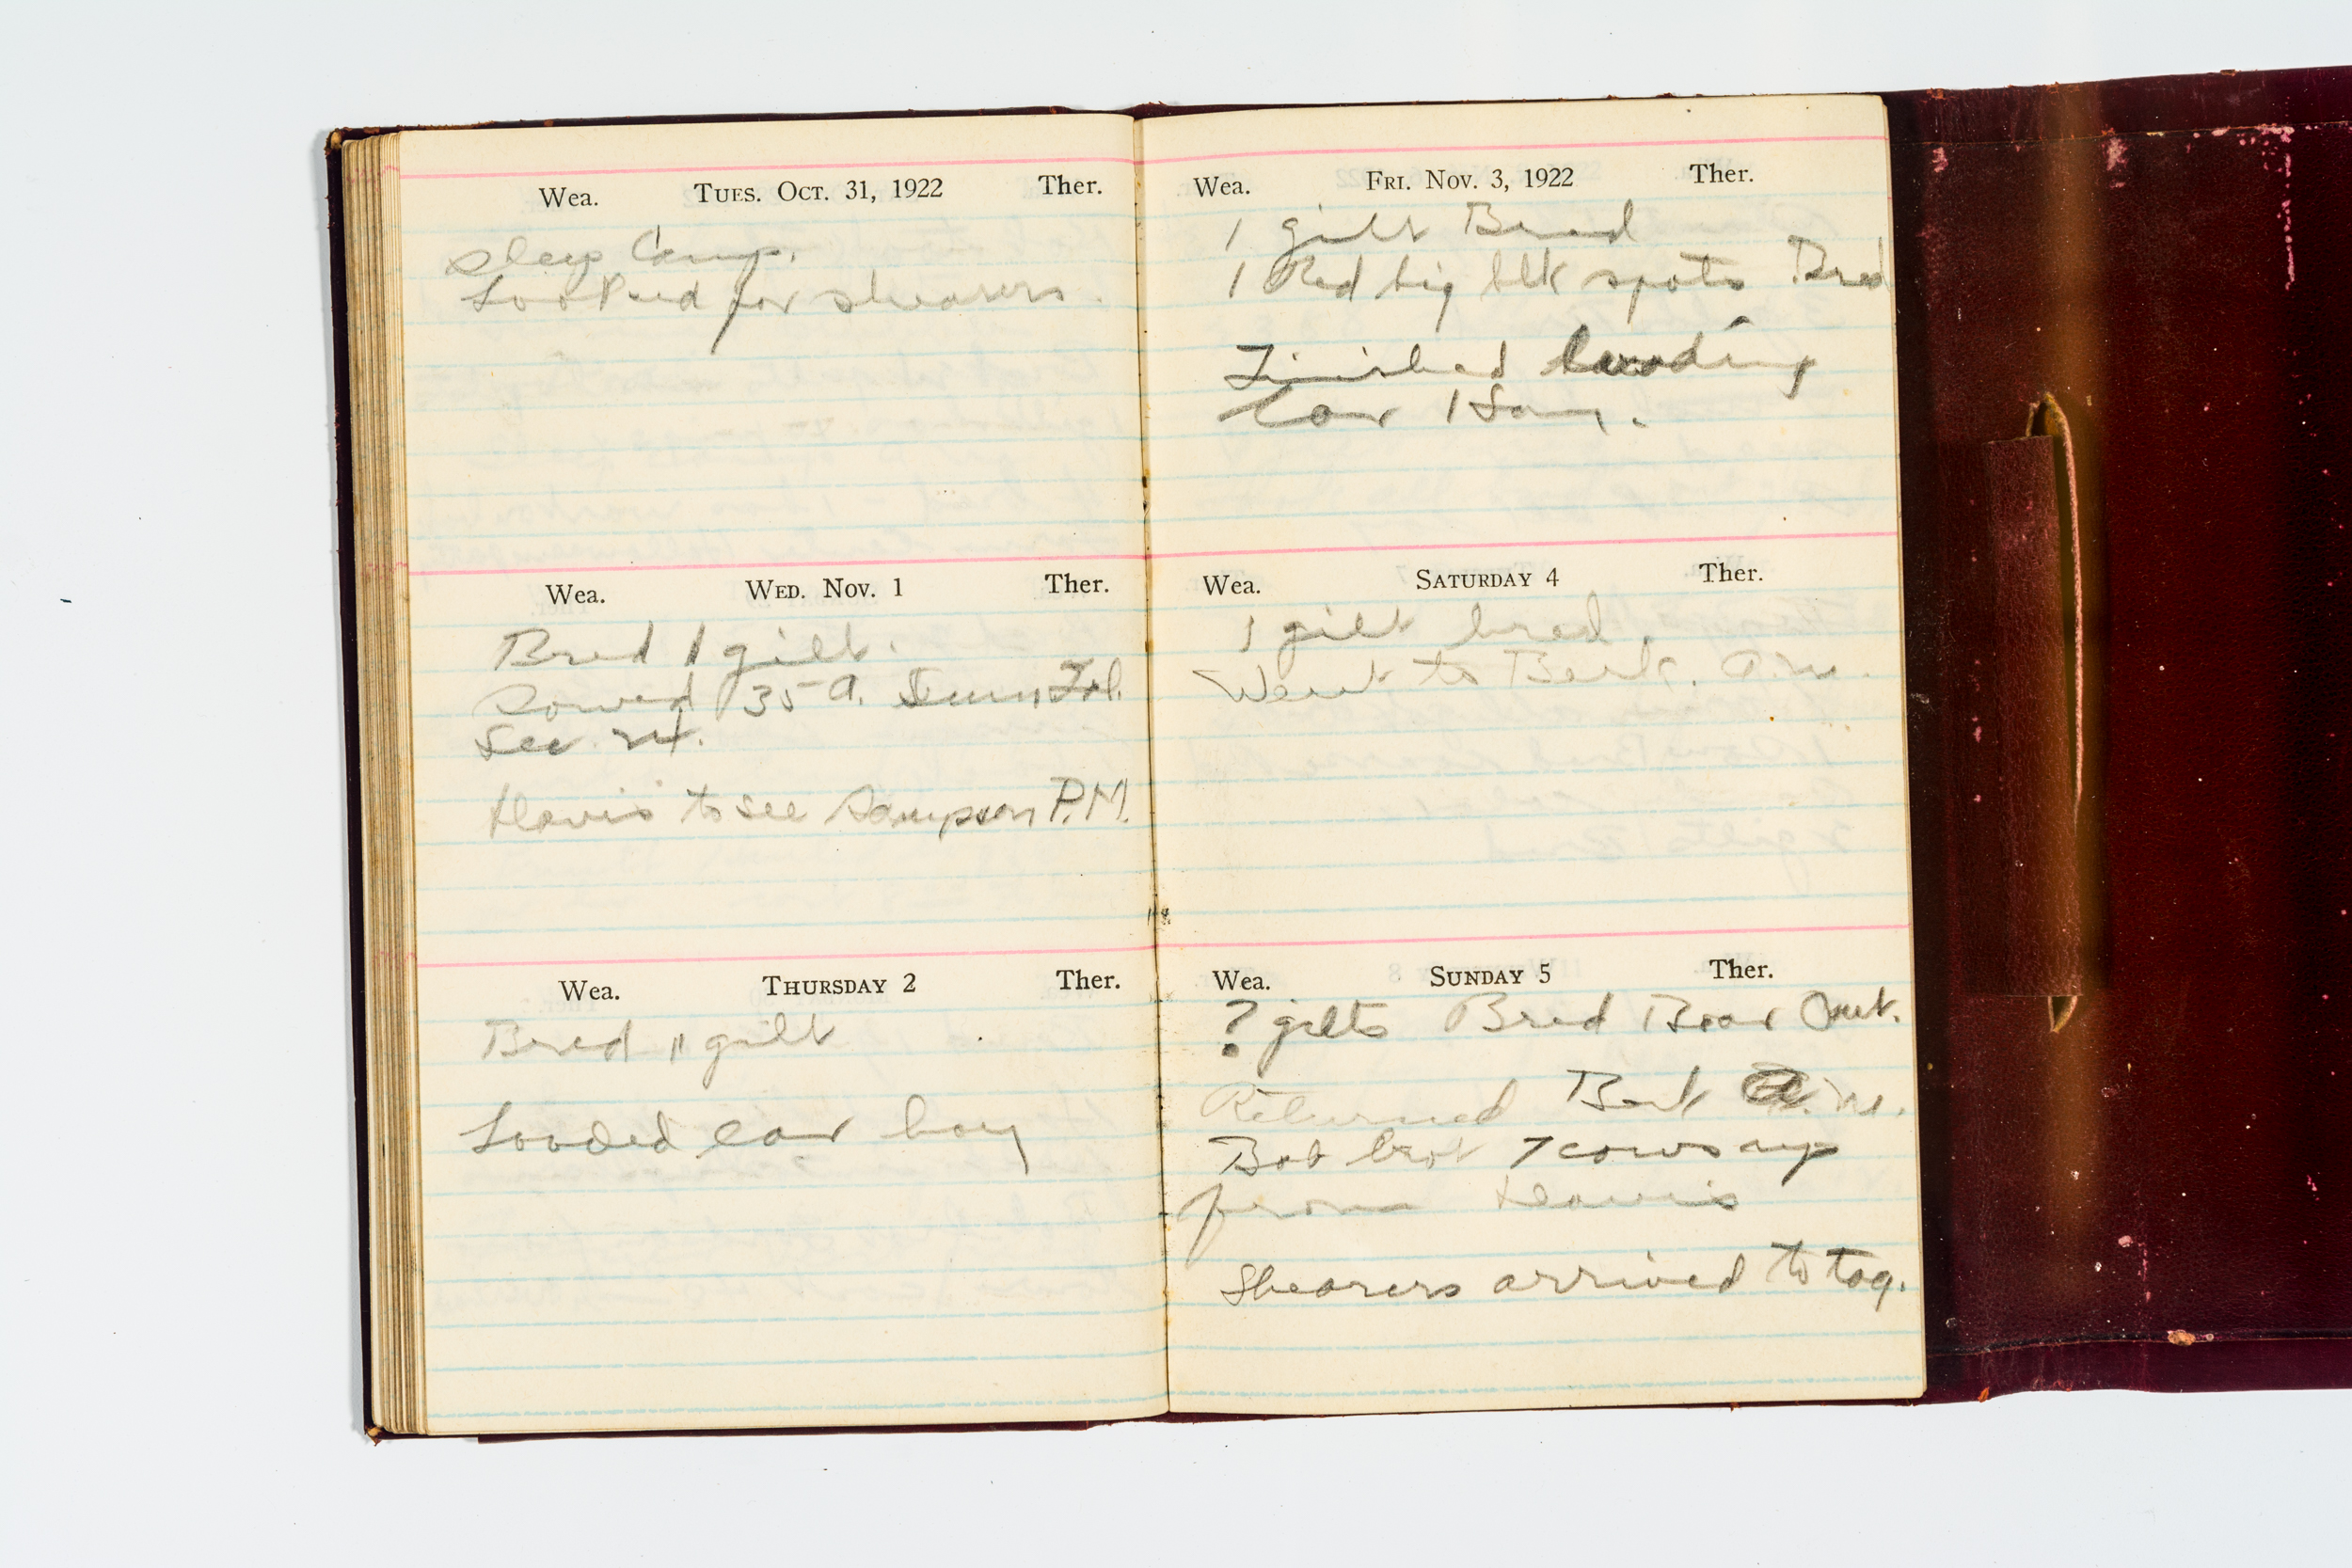 Wea. TUES. OCT. 31, 1922 Ther.
Sleep Camp.
Looked for shearers.
Wea. WED. NOV. 1 Ther.
Bred 1 gilt.
Sowed 35 A.
Sec. 24.
Davis to see Sampson P.M.
Wea. THURSDAY 2 Ther.
Bred 11 gilt
Loaded car hay
Wea. FRI. NOV. 3, 1922 Ther.
1 gilt Bred
1 Red big blk spots Bred
Finished loading
Car 1 Hay.
Wea. SATURDAY 4 Ther.
1 gilt bred.
Went to Berk. A.M.
Wea. SUNDAY 5 Ther.
? gilts Bred Boar Out.
Returned Berk A.M.
Bob brot 7 cows up
from Davis
Shearers arrived to tag.